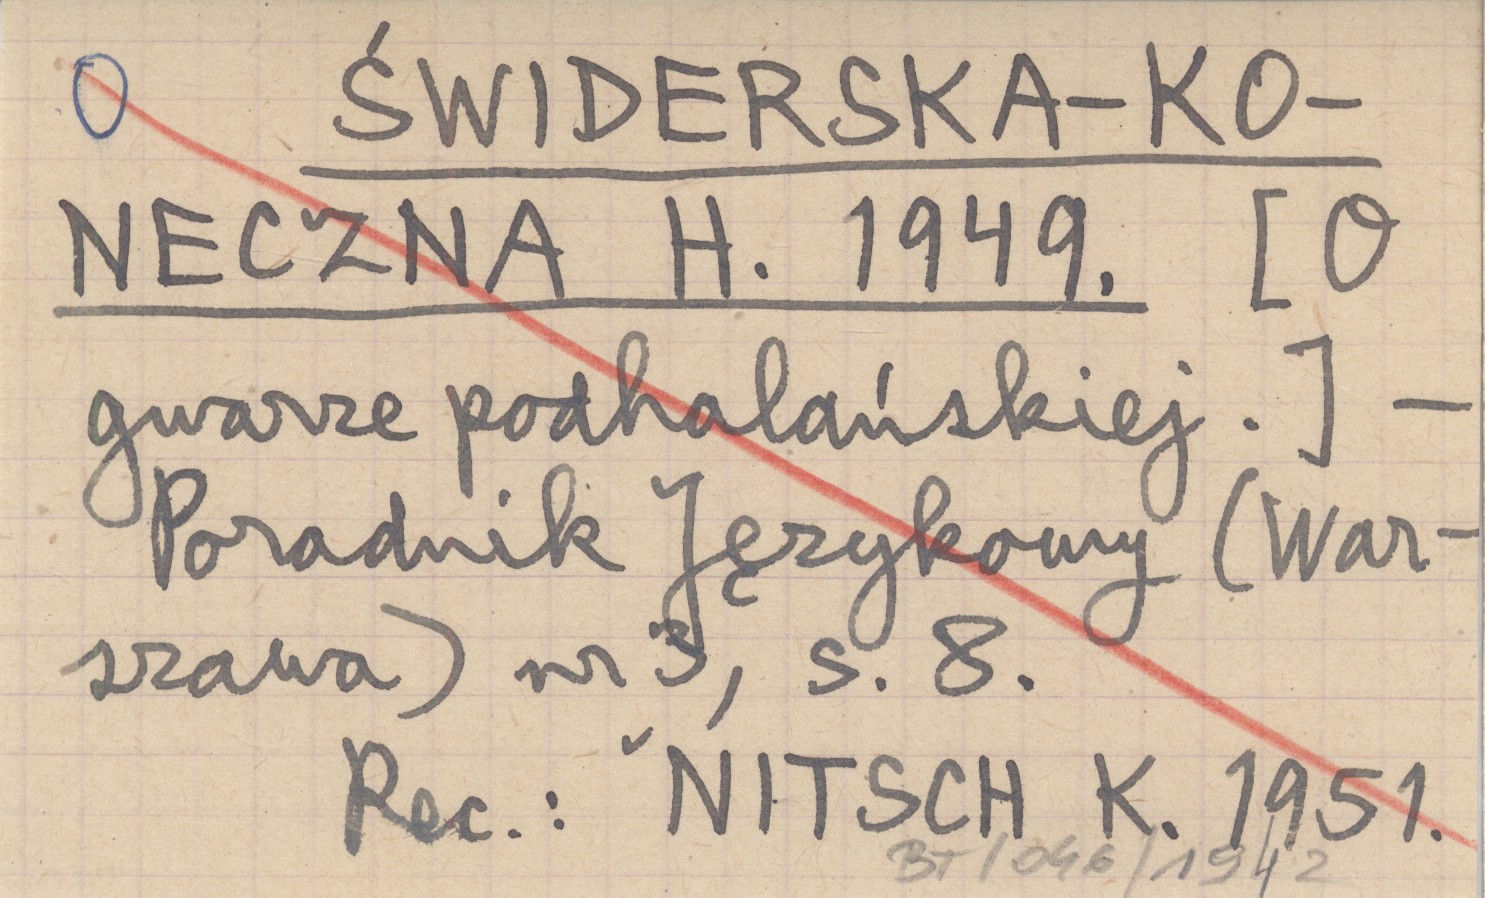 O ŚWIDERSKA-KO-
NECZNA H. 1949. [O
gwarze podhalańskiej.] —
Poradnik Językowy (War-
szawa) nr 3, s. 8.
Rec.: NITSCH K. 1951.
BT/046/1942